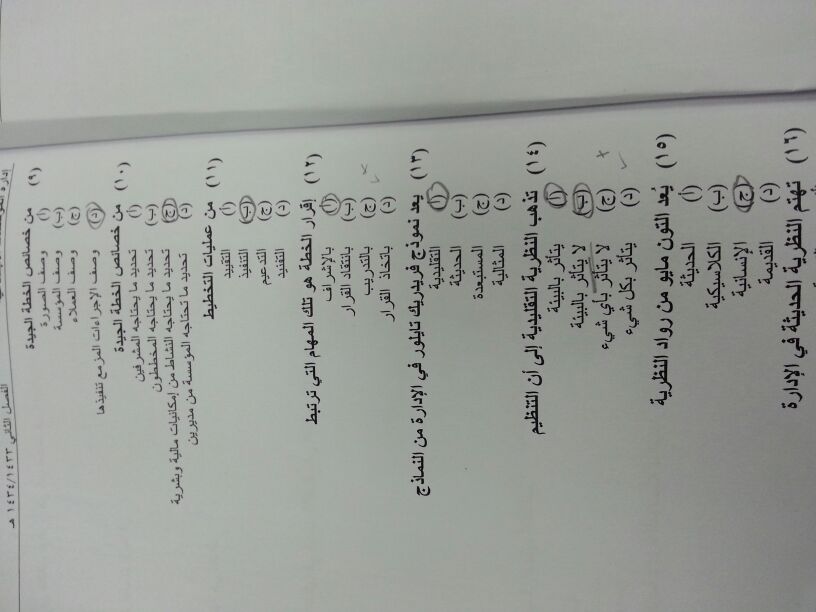 الفصل الثاني ١٤٣٤/١٤٣٣ هـ
(٩) من خصائص الخطة الجيدة
(أ) وصف الصورة
(ب) وصف المؤسسة
(ج) وصف العملاء
(د) وصف الإجراءات المزمع تنفيذها
(١٠) من خصائص الخطة الجيدة
(أ) تحديد ما يحتاجه المشرفين
(ب) تحديد ما يحتاجه المخططون
(ج) تحديد ما يحتاجه النشاط من إمكانيات مالية وبشرية
(د) تحديد ما تحتاجه المؤسسة من مديرين
(١١) من عمليات التخطيط
(أ) التقييد
(ب) التنفيذ
(ج) التدعيم
(د) التفنيد
(١٢) إقرار الخطة هو تلك المهام التي ترتبط
(أ) بالإشراف
(ب) بانتقاد القرار
(ج) بالتدريب
(د) باتخاذ القرار
(١٣) يعد نموذج فريدريك تايلور في الإدارة من النماذج
(أ) التقليدية
(ب) الحديثة
(ج) المستبعدة
(د) المثالية
(١٤) تذهب النظرية التقليدية إلى أن التنظيم
(أ) يتأثر بالبيئة
(ب) لا يتأثر بالبيئة
(ج) لا يتأثر بأي شيء
(د) يتأثر بكل شيء
(١٥) يُعد التون مايو من رواد النظرية
(أ) الحديثة
(ب) الكلاسيكية
(ج) الإنسانية
(د) القديمة
(١٦) تهتم النظرية الحديثة في الإدارة